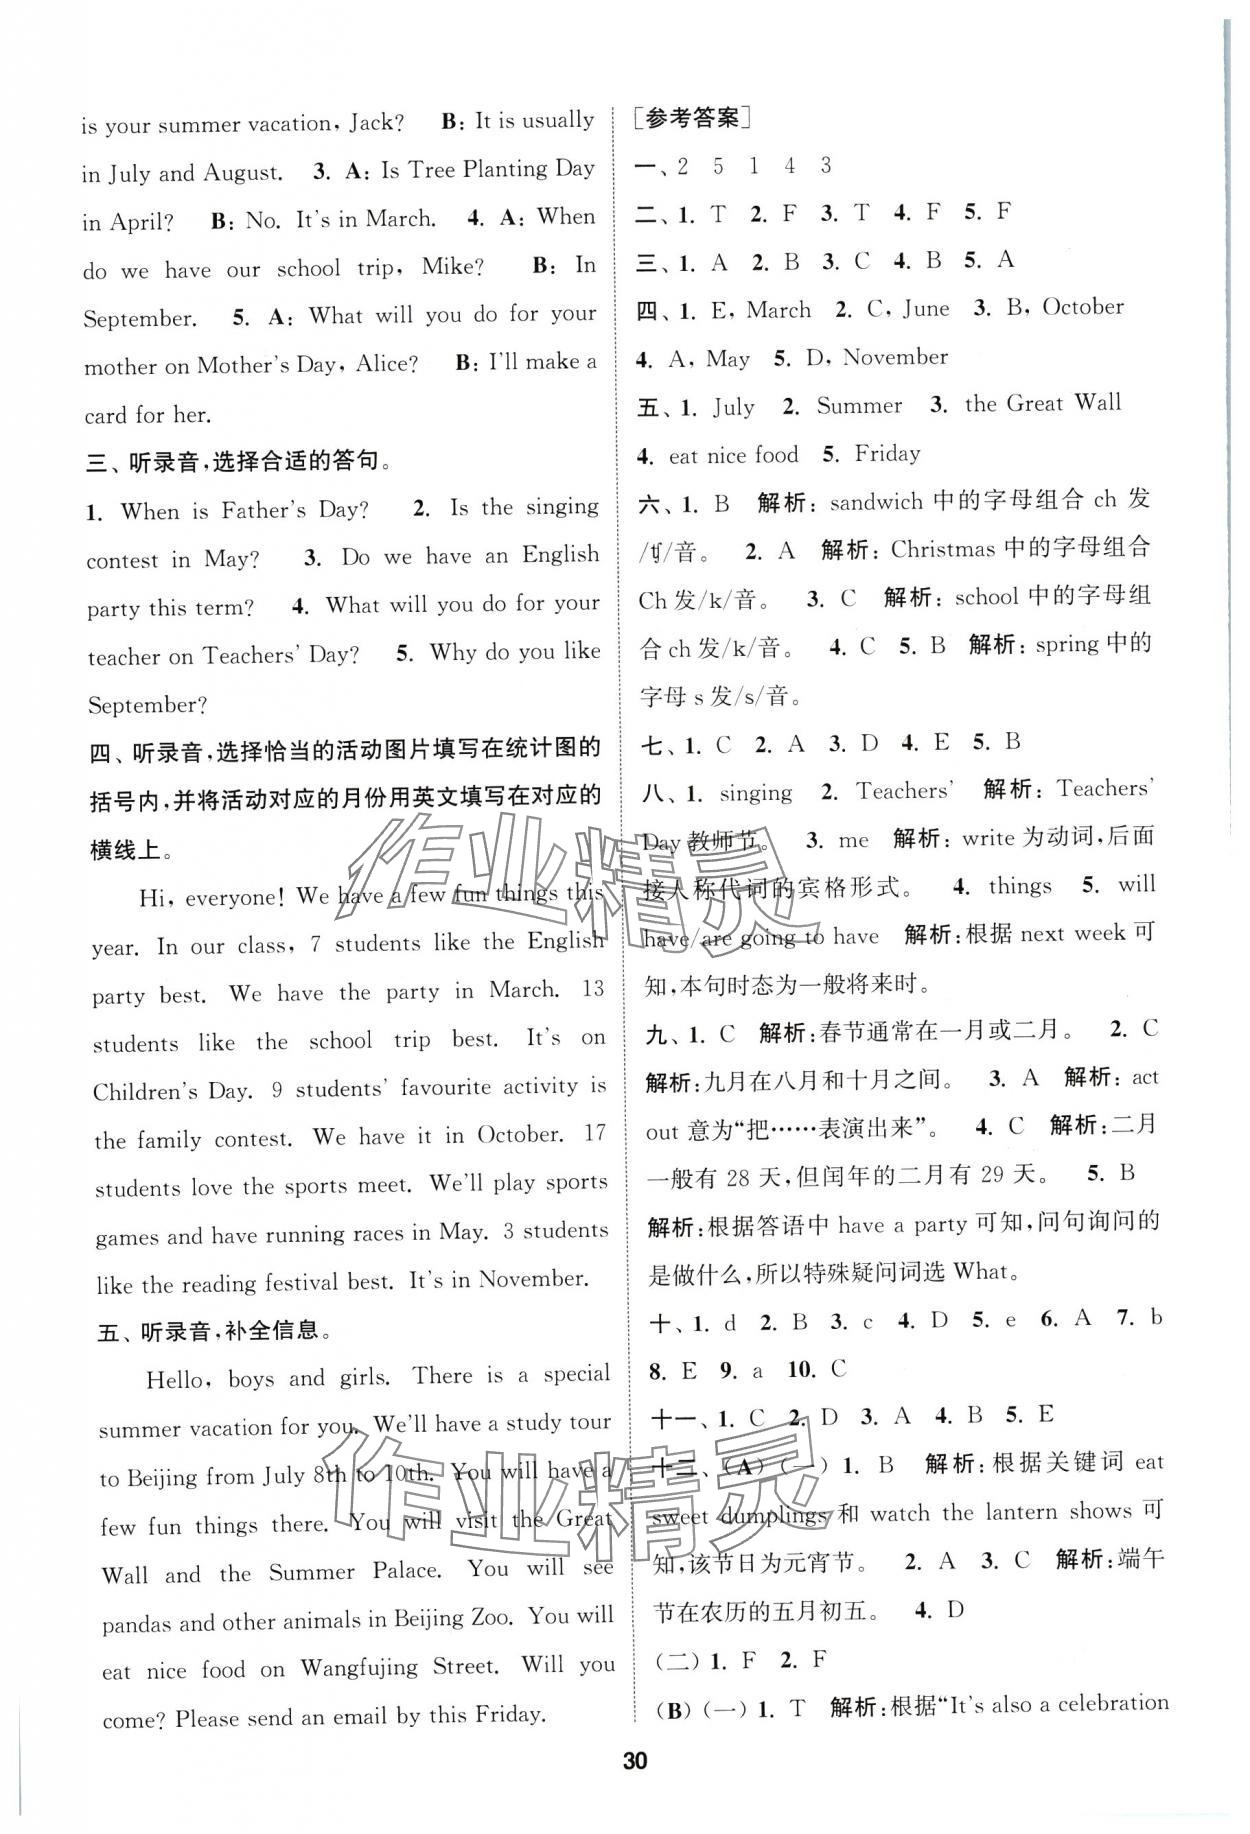 is your summer vacation, Jack? B: It is usually
in July and August. 3. A: Is Tree Planting Day
in April? B: No. It's in March. 4. A: When
do we have our school trip, Mike? B: In
September. 5. A: What will you do for your
mother on Mother's Day, Alice? B: I'll make a
card for her.
三、听录音,选择合适的答句。
1. When is Father's Day? 2. Is the singing
contest in May? 3. Do we have an English
party this term? 4. What will you do for your
teacher on Teachers' Day? 5. Why do you like
September?
四、听录音,选择恰当的活动图片填写在统计图的
括号内,并将活动对应的月份用英文填写在对应的
横线上。
Hi, everyone! We have a few fun things this
year. In our class, 7 students like the English
party best. We have the party in March. 13
students like the school trip best. It's on
Children's Day. 9 students' favourite activity is
the family contest. We have it in October. 17
students love the sports meet. We'll play sports
games and have running races in May. 3 students
like the reading festival best. It's in November.
五、听录音,补全信息。
Hello, boys and girls. There is a special
summer vacation for you. We'll have a study tour
to Beijing from July 8th to 10th. You will have a
few fun things there. You will visit the Great
Wall and the Summer Palace. You will see
pandas and other animals in Beijing Zoo. You will
eat nice food on Wangfujing Street. Will you
come? Please send an email by this Friday.
[参考答案]
一、2 5 1 4 3
二、1. T 2. F 3. T 4. F 5. F
三、1. A 2. B 3. C 4. B 5. A
四、1. E, March 2. C, June 3. B, October
4. A, May 5. D, November
五、1. July 2. Summer 3. the Great Wall
4. eat nice food 5. Friday
六、1. B 解析: sandwich 中的字母组合 ch 发
/tʃ/音。 2. A 解析: Christmas 中的字母组合
Ch 发/k/音。 3. C 解析: school 中的字母组
合 ch 发/k/音。 4. C 5. B 解析: spring 中的
字母 s 发/s/音。
七、1. C 2. A 3. D 4. E 5. B
八、1. singing 2. Teachers' 解析: Teachers'
Day 教师节。 3. me 解析: write 为动词,后面
接人称代词的宾格形式。 4. things 5. will
have/are going to have 解析:根据 next week 可
知,本句时态为一般将来时。
九、1. C 解析:春节通常在一月或二月。 2. C
解析:九月在八月和十月之间。 3. A 解析: act
out 意为“把……表演出来”。 4. C 解析:二月
一般有 28 天,但闰年的二月有 29 天。 5. B
解析:根据答语中 have a party 可知,问句询问的
是做什么,所以特殊疑问词选 What。
十、1. d 2. B 3. c 4. D 5. e 6. A 7. b
8. E 9. a 10. C
十一、1. C 2. D 3. A 4. B 5. E
十二、(A)(一)1. B 解析:根据关键词 eat
sweet dumplings 和 watch the lantern shows 可
知,该节日为元宵节。 2. A 3. C 解析:端午
节在农历的五月初五。 4. D
(二)1. F 2. F
(B)(一)1. T 解析:根据“It's also a celebration
作业精灵
作业精灵
30